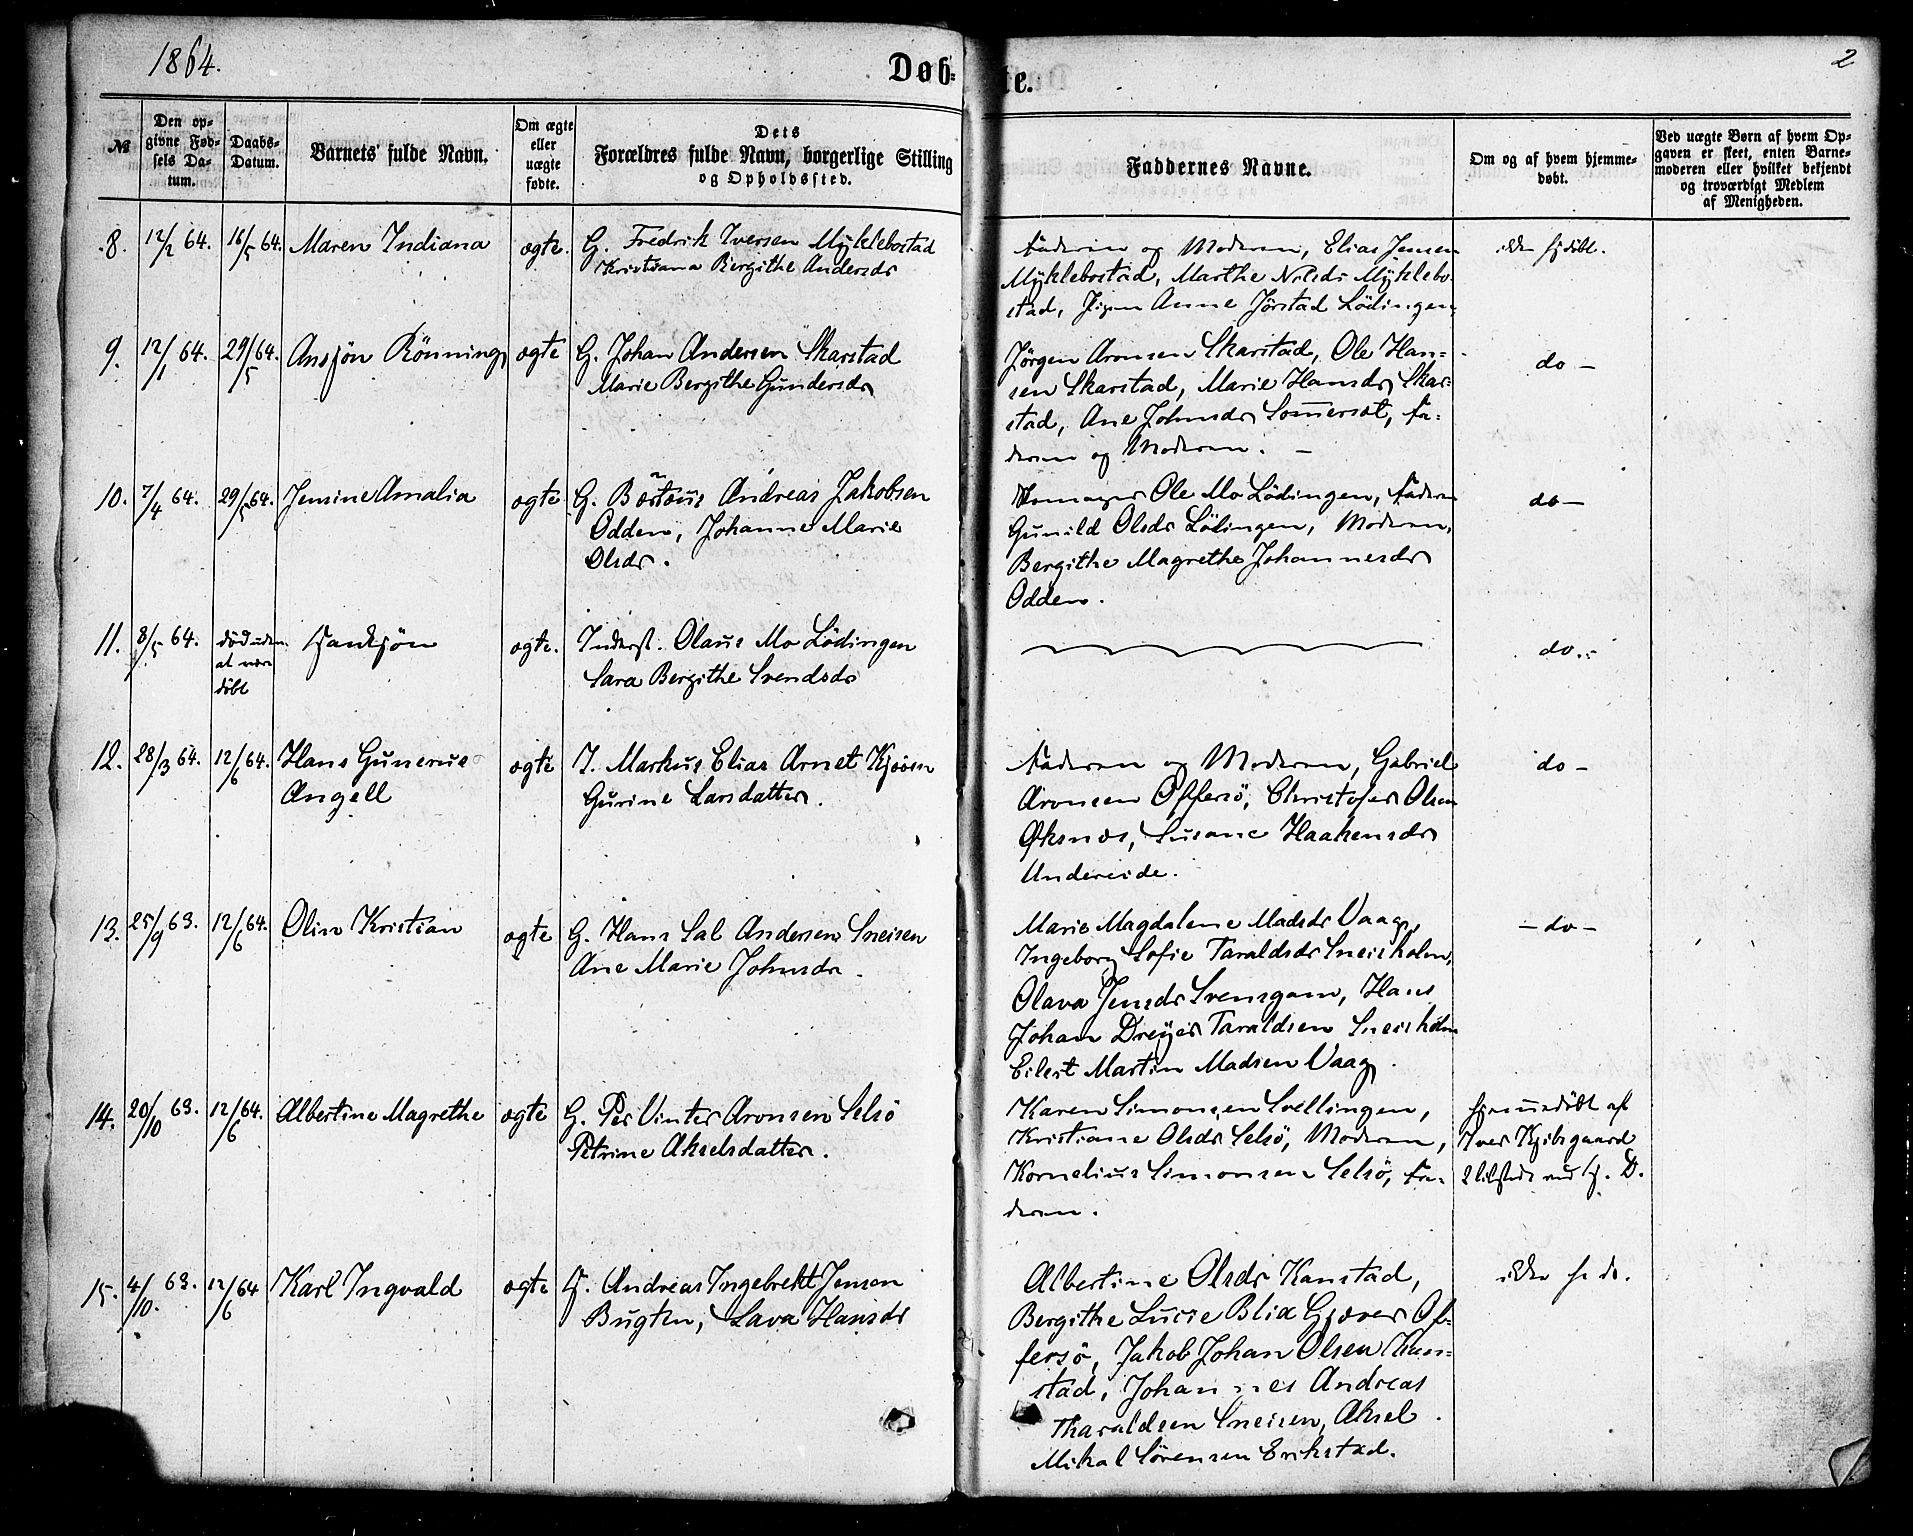 1864.
Døbte.
2
№
Den opgivne Fødsels Datum.
Daabs-Datum.
Barnets fulde Navn.
Om ægte eller uægte fødte.
Dets Forældres fulde Navn, borgerlige Stilling og Opholdssted.
Faddernes Navne.
Om og af hvem hjemmedøbt.
Ved uægte Børn af hvem Opgaven er skeet, enten Barnemoderen eller hvilket bekjendt og troværdigt Medlem af Menigheden.
8. 12/2 64. 16/5 64. Maren Indiana ægte. G. Fredrik Iversen Myklebostad
Kristiana Bergithe Andersdr
Faderen og Moderen, Elias Jensen
Myklebostad, Marthe Nilsdr Myklebo-
stad, Pigen Anne Jörstad Lödingen
ikke hjdøbt.
9. 12/1 64. 29/5 64. Ansjön Rönning ægte G. Johan Andersen Skarstad
Marie Bergithe Gundersdr
Jørgen Aronsen Skarstad, Ole Han-
sen Skarstad, Marie Hansdr Skar-
stad, Ane Johnsdr Somerset, Fa-
deren og Moderen. —
do —
10. 7/4 64. 29/5 64. Jensine Amalia ægte G. Andreas Jakobsen
Odden, Johanne Marie
Olsdr.
Ole Mo Lödingen, Faderen
Gunild Olsdr Lödingen, Moderen,
Bergithe Magrethe Johannesdr
Odden.
do —
11. 8/5 64. död uden
at være
döbt
ægte. Inderst. Olaus Mo Lödingen
Sara Bergithe Svendsdr
do. -
12. 28/3 64. 12/6 64. Hans Gunerus
Angell
ægte I. Markus Elias Arnet Kjöen
Gurine Larsdatter.
Faderen og Moderen, Gabriel
Aronsen Offersö, Christofer Olsen
Øksnæs, Susane Haakensdr
Undereide.
do —
13. 25/9 63. 12/6 64. Olin Kristian ægte G. Hans Sal Andersen Sneisen
Ane Marie Johnsdr.
Marie Magdalene Madsdr Vaag,
Ingeborg Sofie Taraldsdr Sneisholm,
Olava Jensdr Svensgam, Hans
Johan Dreyer Taraldsen Sneisholm
Eilert Martin Madsen Vaag.
— do —
14. 20/10 63. 12/6 64. Albertine Magrethe ægte G. Per Vinter Aronsen Selsö
Petrine Akselsdatter.
Karen Simonsen Svellingen,
Kristiane Olsdr Selsö, Moderen,
Kornelius Simonsen Selsö, Fa-
deren.
hjemmedöbt af
Iver Kjibsgaard
15. 4/10. 63. 12/6 64 Karl Ingvald ægte G. Andreas Ingebrekt Jensen
Bugten, Lava Hansdr
Albertine Olsdr Kanstad,
Bergithe Lucie Blix Gjæver Of-
fersö, Jakob Johan Olsen Kan-
stad, Johannes Andreas
Tharaldsen Sneisen, Aksel
Mikal Sörensen Erikstad.
ikke hj d.